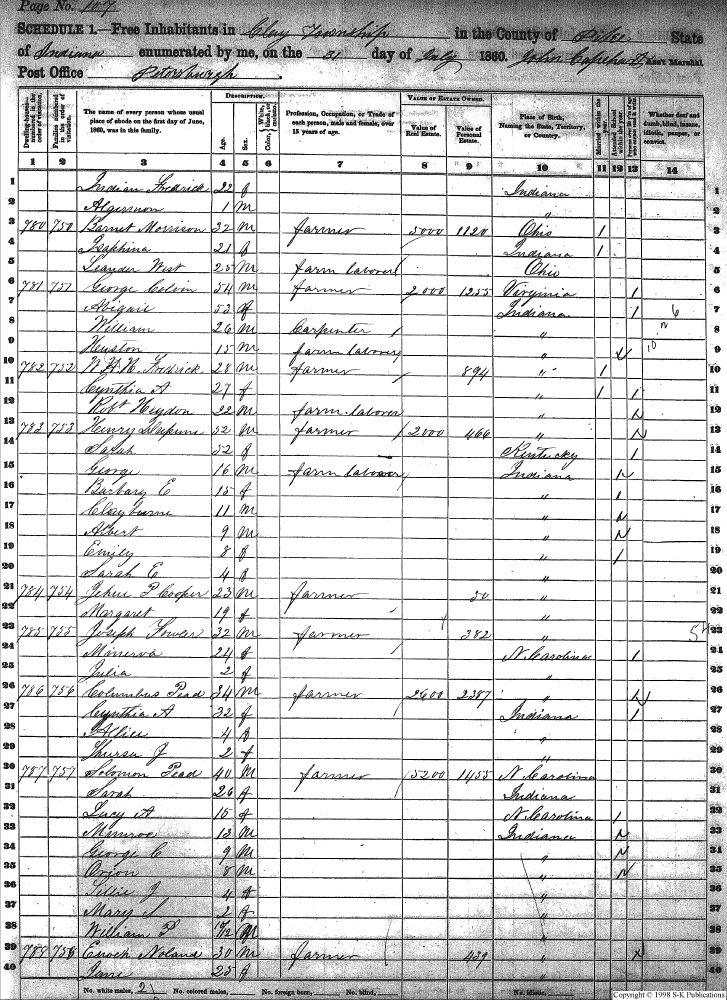 Page No. 107
SCHEDULE 1.—Free Inhabitants in Clay Township in the County of Pike State
of Indiana enumerated by me, on the 31 day of July 1860. John Capehart Ass't Marshal
Post Office Petersburgh
Dwelling-houses numbered in the order of visitation.
Families numbered in the order of visitation.
The name of every person whose usual place of abode on the first day of June, 1860, was in this family.
DESCRIPTION.
Age.
Sex.
Color,
Profession, Occupation, or Trade of each person, male and female, over 15 years of age.
VALUE OF ESTATE OWNED.
Value of Real Estate.
Value of Personal Estate.
Place of Birth, Naming the State, Territory, or Country.
Married within the year.
Attended School within the year.
Whether deaf and dumb, blind, insane, idiotic, pauper, or convict.
1 2 3 4 5 6 7 8 9 10 11 12 13 14
1 Indian Fredrick 22 f Indiana 1
2 Algernon 1 m " 2
3 780 750 Barnet Morrison 32 m farmer 5000 1120 Ohio 1 3
4 Josephina 21 f Indiana 1 4
5 Leander West 25 m farm laborer Ohio 5
6 781 751 George Colvin 54 m farmer 2000 1255 Virginia 1 6
7 Abigail 53 f Indiana 1 7
8 William 26 m Carpenter " 8
9 Heuston 15 m farm laborer " 9
10 782 752 Fredrick 28 m farmer 894 " 1 10
11 Cynthia A 27 f " 1 1 11
12 Robt Heydon 22 m farm laborer " 12
13 783 753 Henry 52 m farmer 2000 466 " 13
14 Sarah 52 f Kentucky 1 14
15 George 16 m farm laborer Indiana 15
16 Barbary E 15 f " 1 16
17 Clayburne 11 m " 17
18 Albert 9 m " 18
19 Emily 8 f " 1 19
20 Sarah E 4 f " 20
21 784 754 Jehue P Cooper 23 m farmer 50 " 21
22 Margaret 19 f " 22
23 785 755 Joseph 32 m farmer 382 " 23
24 Minerva 24 f N. Carolina 1 24
25 Julia 2 f " 25
26 786 756 Columbus Pead 34 m farmer 2600 2387 " 26
27 Cynthia A 32 f Indiana 1 27
28 Allice 4 f " 28
29 J 2 f " 29
30 787 757 Solomon Pead 40 m farmer 5200 1455 N. Carolina 30
31 Sarah 26 f Indiana 31
32 Lucy A 15 f N. Carolina 1 32
33 Munroe 13 m Indiana 33
34 George C 9 m " 34
35 Orion 8 m " 35
36 Lillie J 4 f " 36
37 Mary S 2 f " 37
38 William P m " 38
39 788 758 Enoch Noland 30 m farmer 439 " 39
40 Jane 25 f 40
No. white males, No. colored males, No. foreign born, No. blind, No. idiotic,
Copyright © 1998 S-K Publications